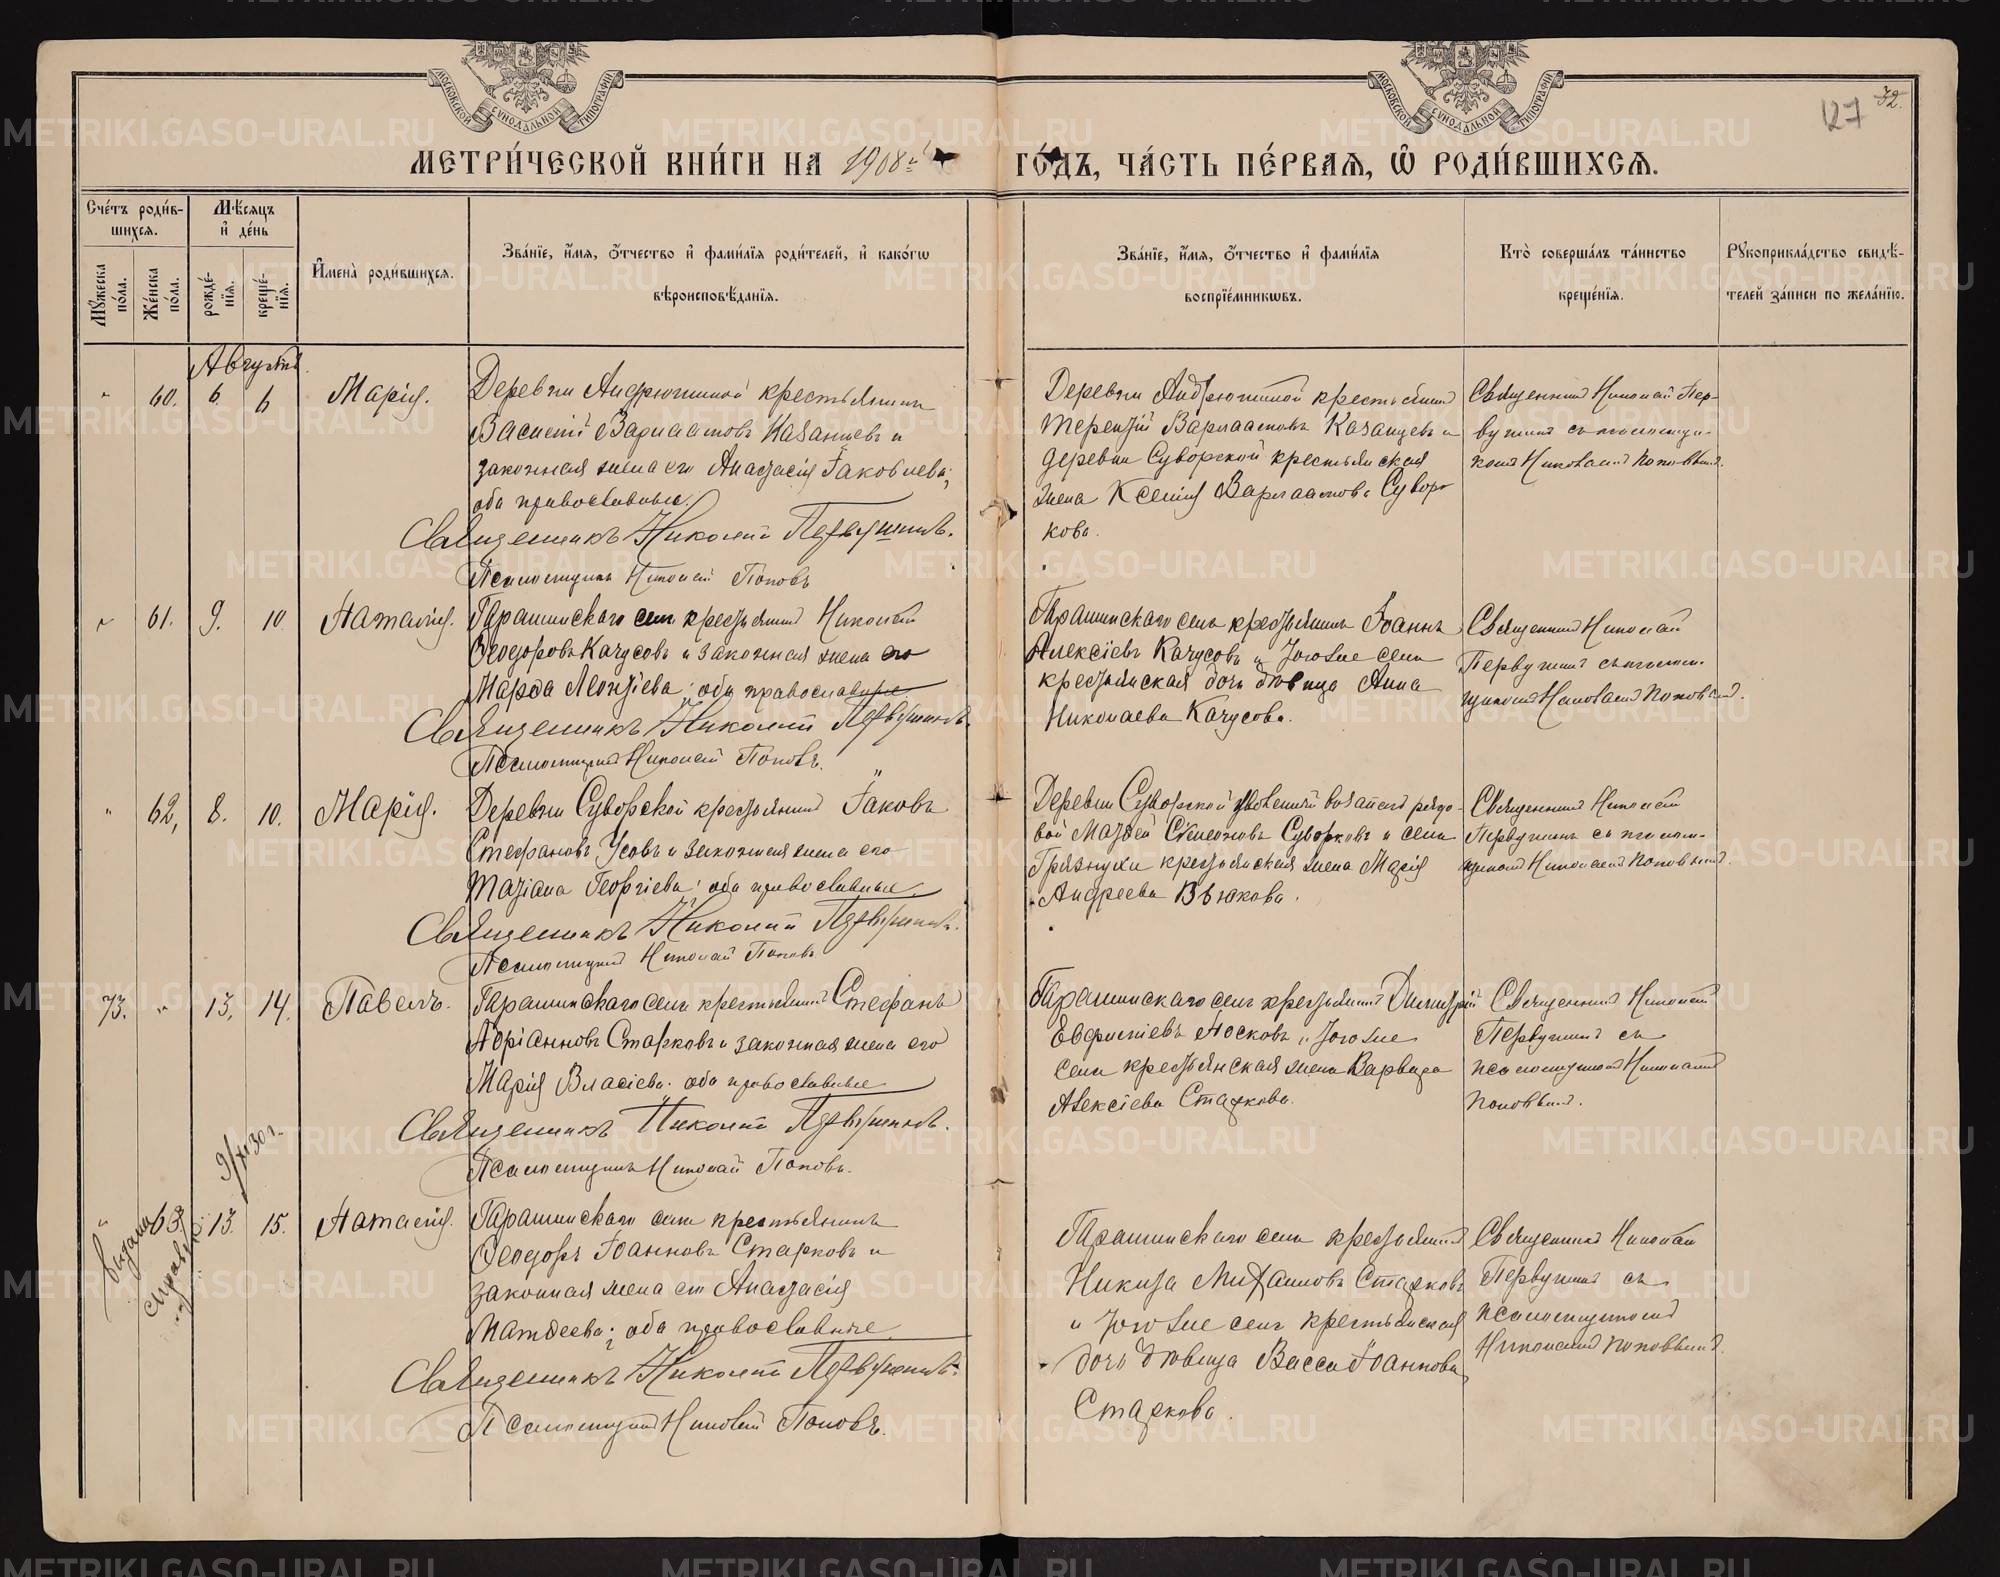 127 32.
МОСКОВСКОЙ СѴНОДАЛЬНОЙ ТИПОГРАФІИ
МОСКОВСКОЙ СѴНОДАЛЬНОЙ ТИПОГРАФІИ
МЕТРИ́ЧЕСКОЙ КНИ́ГИ НА 1908й ГО́ДЪ, ЧА́СТЬ ПЕ́РВАѦ, Ѡ҆ РОДИ́ВШИХСѦ.
Сче́тъ роди́в-
шихсѧ.
Мꙋ́жеска по́ла.
Же́нска по́ла.
Мѣ́сѧцъ и҆ де́нь
рожде́-нїѧ.
креще́-нїѧ.
И҆мена̀ роди́вшихсѧ.
Зва́нїе, и҆́мѧ, ѻ҆́тчество и҆ фами́лїѧ роди́телей, и҆ како́гѡ
вѣроисповѣ́данїѧ.
Зва́нїе, и҆́мѧ, ѻ҆́тчество и҆ фами́лїѧ
воспрїе́мникѡвъ.
Кто̀ соверша́лъ та́инство
креще́нїѧ.
Рꙋкоприкла́дство свидѣ́-
телей за́писи по жела́нїю.
Августъ.
" 60. 6. 6 Марія.
Деревни Андрюшиной крестьянинъ
Василій Варлаамовъ Казанцевъ и
законная жена его Анастасія Іаковлева;
оба православные.
Священникъ Николай Первушинъ.
Псаломщикъ Николай Поповъ
Деревни Андрюшиной крестьянинъ
Терентій Варлаамовъ Казанцевъ и
деревни Суворской крестьянская
жена Ксенія Варлаамова Сувор
кова.
Священникъ Николай Пер-
вушинъ съ псаломщи-
комъ Николаемъ Поповымъ.
" 61. 9. 10 Наталія.
Гарашинскаго села крестьянинъ Николай
Ѳеодоровъ Качусовъ и законная жена его
Марѳа Леонтіева; оба православные.
Священникъ Николай Первушинъ.
Псаломщикъ Николай Поповъ.
Гарашинскаго села крестьянинъ Іоаннъ
Алексіевъ Качусовъ и того же села
крестьянская дочь дѣвица Анна
Николаева Качусова.
Священникъ Николай
Первушинъ съ псалом-
щикомъ Николаемъ Поповымъ.
" 62, 8. 10. Марія.
Деревни Суворской крестьянинъ Іаковъ
Стефановъ Усовъ и законная жена его
Татіана Георгіева; оба православные.
Священникъ Николай Первушинъ.
Псаломщикъ Николай Поповъ
Деревни Суворской уволенный въ запасъ рядо-
вой Матѳей Симеоновъ Суворковъ и села
Грязнухи крестьянская жена Марія
Андреева Вьюкова.
Священникъ Николай
Первушинъ съ псалом-
щикомъ Николаемъ Поповымъ.
73. " 13. 14. Павелъ.
Гарашинскаго села крестьянинъ Стефанъ
Адріановъ Старковъ и законная жена его
Марія Власіева. оба православные
Священникъ Николай Первушинъ.
Псаломщикъ Николай Поповъ.
Гарашинскаго села крестьянинъ Димитрій
Евфиміевъ Носковъ и того же
села крестьянская жена Варвара
Алексіева Старкова.
Священникъ Николай
Первушинъ съ
псаломщикомъ Николаемъ
Поповымъ.
9/XI 30 г.
выдана
справка
" 63 13. 15. Наталія.
Гарашинскаго села крестьянинъ
Ѳеодоръ Іоанновъ Старковъ и
законная жена его Анастасія
Матѳеева; оба православные
Священникъ Николай Первушинъ.
Псаломщикъ Николай Поповъ.
Гарашинскаго села крестьянинъ
Никита Михаиловъ Старковъ
и того же села крестьянская
дочь дѣвица Васса Іоаннова
Старкова.
Священникъ Николай
Первушинъ съ
псаломщикомъ
Николаемъ Поповымъ.
METRIKI.GASO-URAL.RU